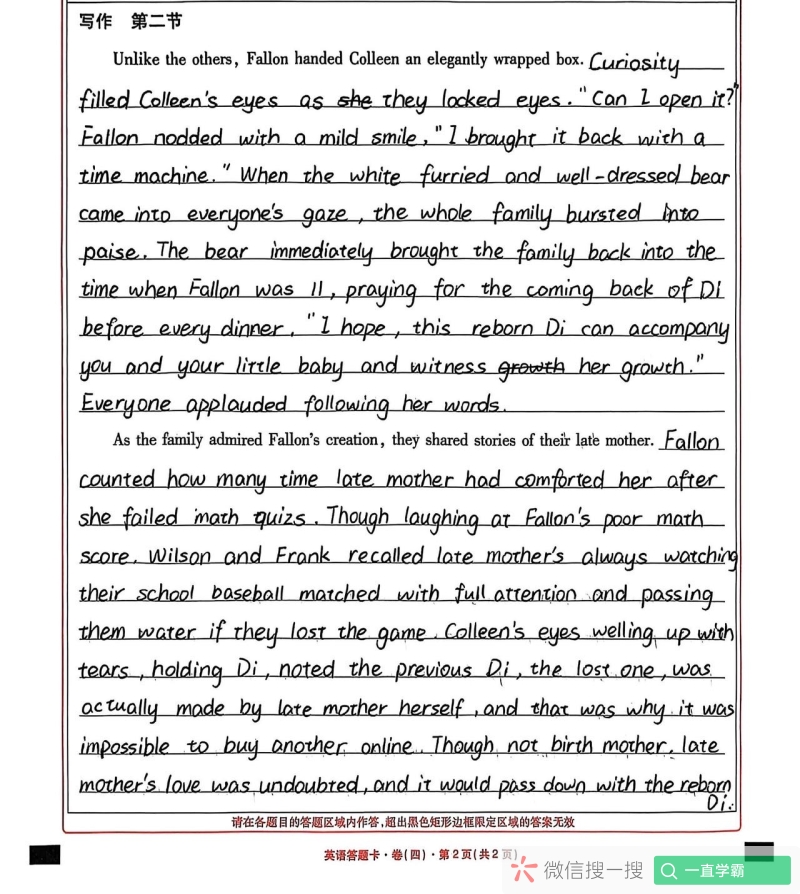 写作 第二节
Unlike the others, Fallon handed Colleen an elegantly wrapped box. Curiosity
filled Colleen's eyes as she they locked eyes. "Can I open it?"
Fallon nodded with a mild smile, "I brought it back with a
time machine." When the white furried and well-dressed bear
came into everyone's gaze, the whole family bursted into
paise. The bear immediately brought the family back into the
time when Fallon was 11, praying for the coming back of Di
before every dinner. "I hope, this reborn Di can accompany
you and your little baby and witness growth her growth."
Everyone applauded following her words.
As the family admired Fallon's creation, they shared stories of their late mother. Fallon
counted how many time late mother had comforted her after
she failed math quizs. Though laughing at Fallon's poor math
score, Wilson and Frank recalled late mother's always watching
their school baseball matched with full attention and passing
them water if they lost the game. Colleen's eyes welling up with
tears, holding Di, noted the previous Di, the lost one, was
actually made by late mother herself, and that was why it was
impossible to buy another online. Though not birth mother, late
mother's love was undoubted, and it would pass down with the reborn
Di.
请在各题目的答题区域内作答,超出黑色矩形边框限定区域的答案无效
英语答题卡·卷(四)·第2页(共2页)
微信搜一搜
一直学霸